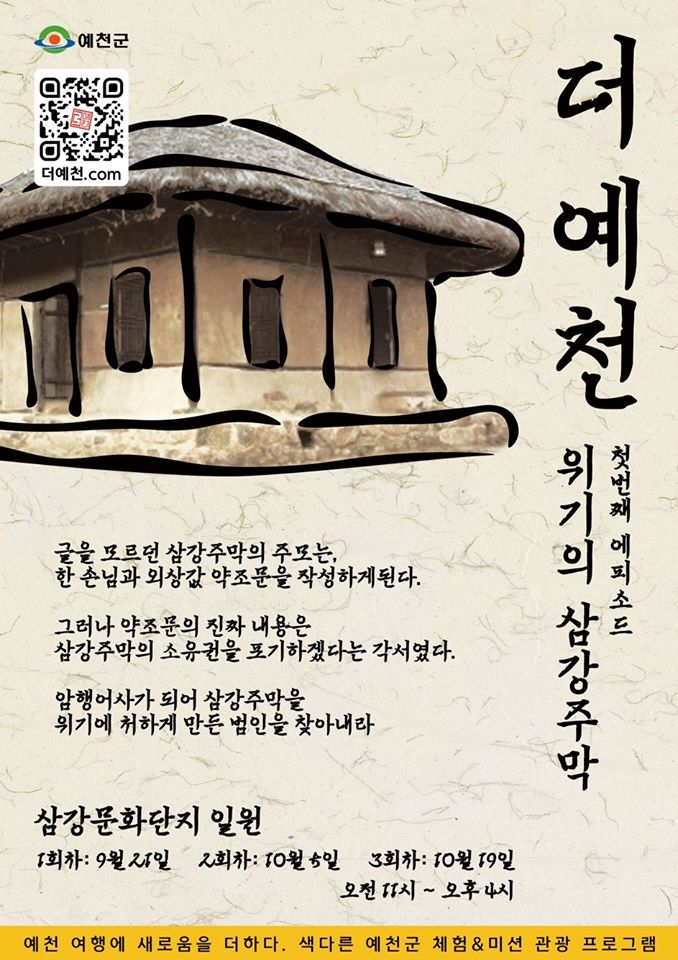 예천군
더예천.com
더 예천
첫번째 에피소드
위기의 삼강주막
글을 모르던 삼강주막의 주모는,
한 손님과 외상값 약조문을 작성하게된다.
그러나 약조문의 진짜 내용은
삼강주막의 소유권을 포기하겠다는 각서였다.
암행어사가 되어 삼강주막을
위기에 처하게 만든 범인을 찾아내라
삼강문화단지 일원
1회차: 9월 21일 2회차: 10월 5일 3회차: 10월 19일
오전 11시 ~ 오후 4시
예천 여행에 새로움을 더하다. 색다른 예천군 체험&미션 관광 프로그램